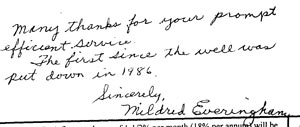 Many thanks for your prompt
efficient service.
The first since the well was
put down in 1986.
Sincerely,
Mildred Everingham
per month (18% per annum) will be